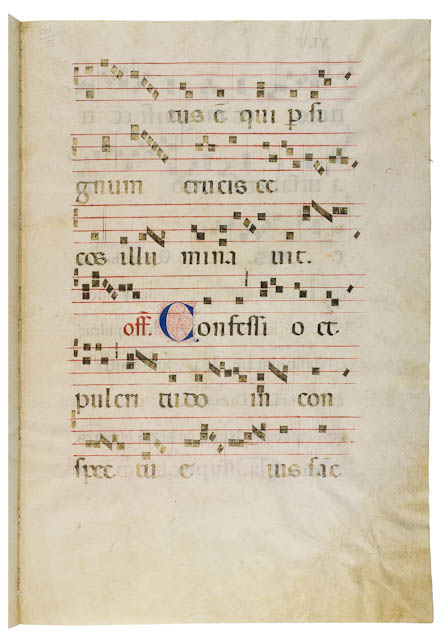 tus ē qui p si
gnum crucis ce
cos illu mina uit.
off. Confessi o et
pulcri tudo in con
spec tu e ius sāc